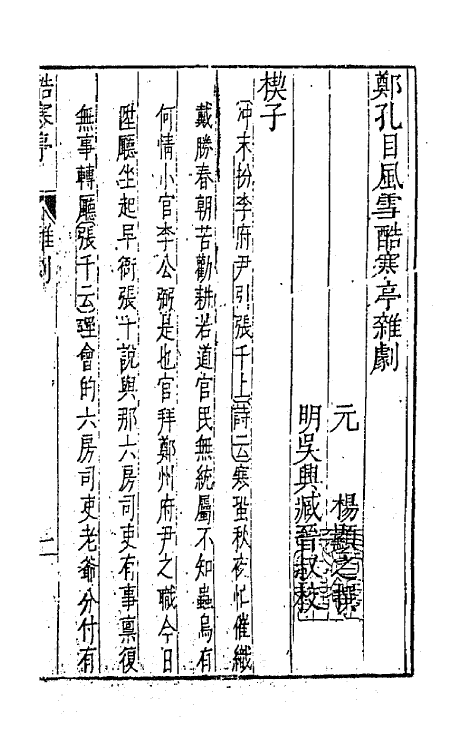 鄭孔目風雪酷寒亭雜劇
元　楊顯之撰
明吳興臧晉叔校
楔子
冲末扮李府尹引張千上詩云寒蛩秋夜忙催織
戴勝春朝苦勸耕若道官民無統屬不知蟲鳥有
何情小官李公弼是也官拜鄭州府尹之職今日
陞廳坐起早衙張千說與那六房司吏有事禀復
無事轉廳張千云理會的六房司吏老爺分付有
酷寒亭　雜劇　一